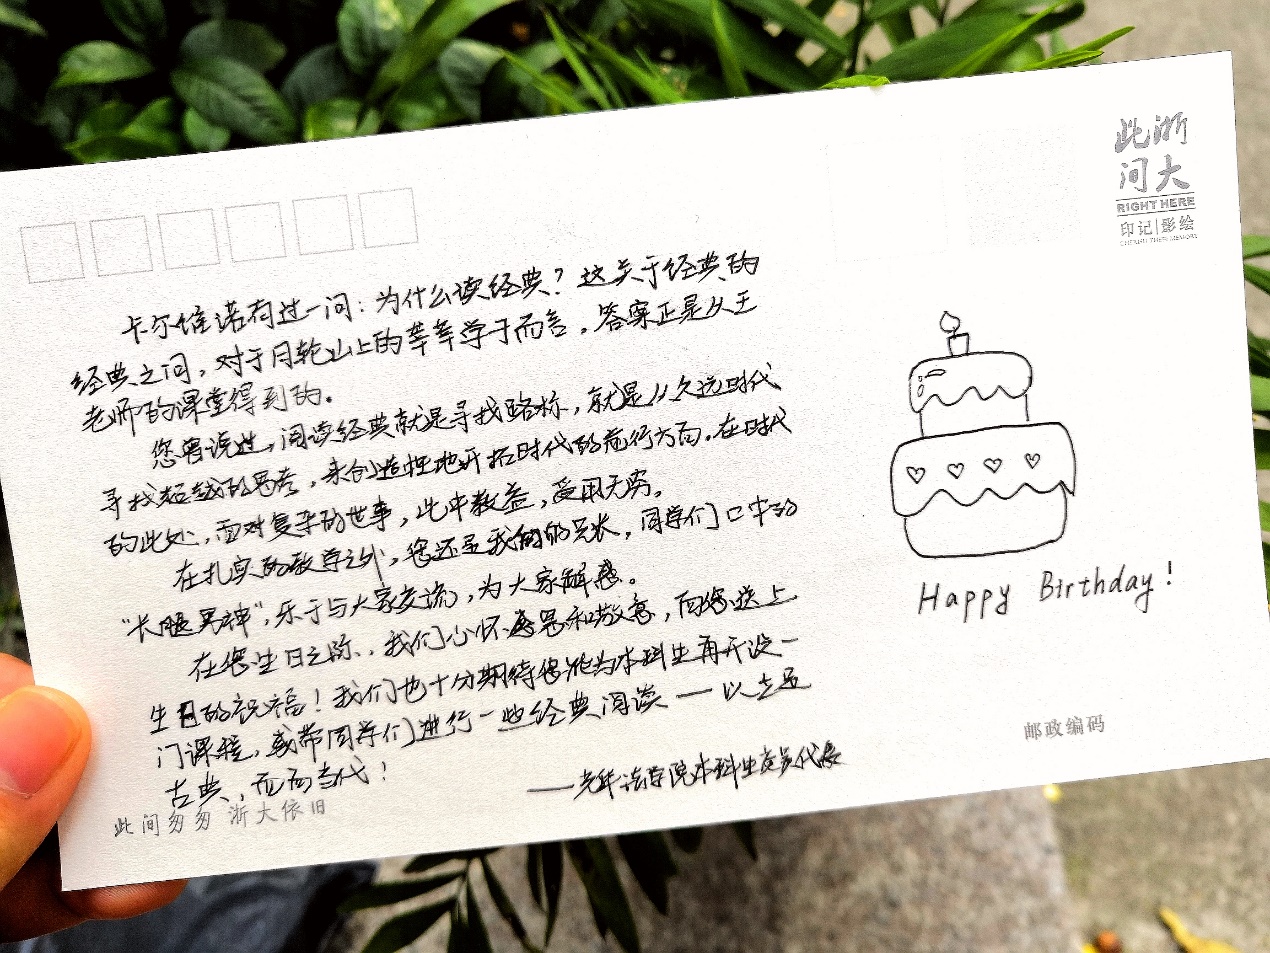 此浙
间大
RIGHT HERE
印记|影绘
卡尔维诺有过一问：为什么读经典？这关于经典的
经典之问，对于月轮山上的莘莘学子而言，答案正是从王
老师的课堂得到的。
您曾说过，阅读经典就是寻找路标，就是从久远时代
寻找超越的思考，来创造性地开拓时代的前行方向。在时代
的此处，面对复杂的世事，此中教益，受用无穷。
在扎实的教学之外，您还是我们的兄长，同学们口中的
“长腿男神”，乐于与大家交流，为大家解惑。
在您生日之际，我们心怀感恩和敬意，向您送上
生日的祝福！我们也十分期待您能为本科生再开设一
门课程，或带同学们进行一些经典阅读——以走近
古典，而向当代！
——光华法学院本科生党员代表
Happy Birthday!
邮政编码
此间匆匆 浙大依旧